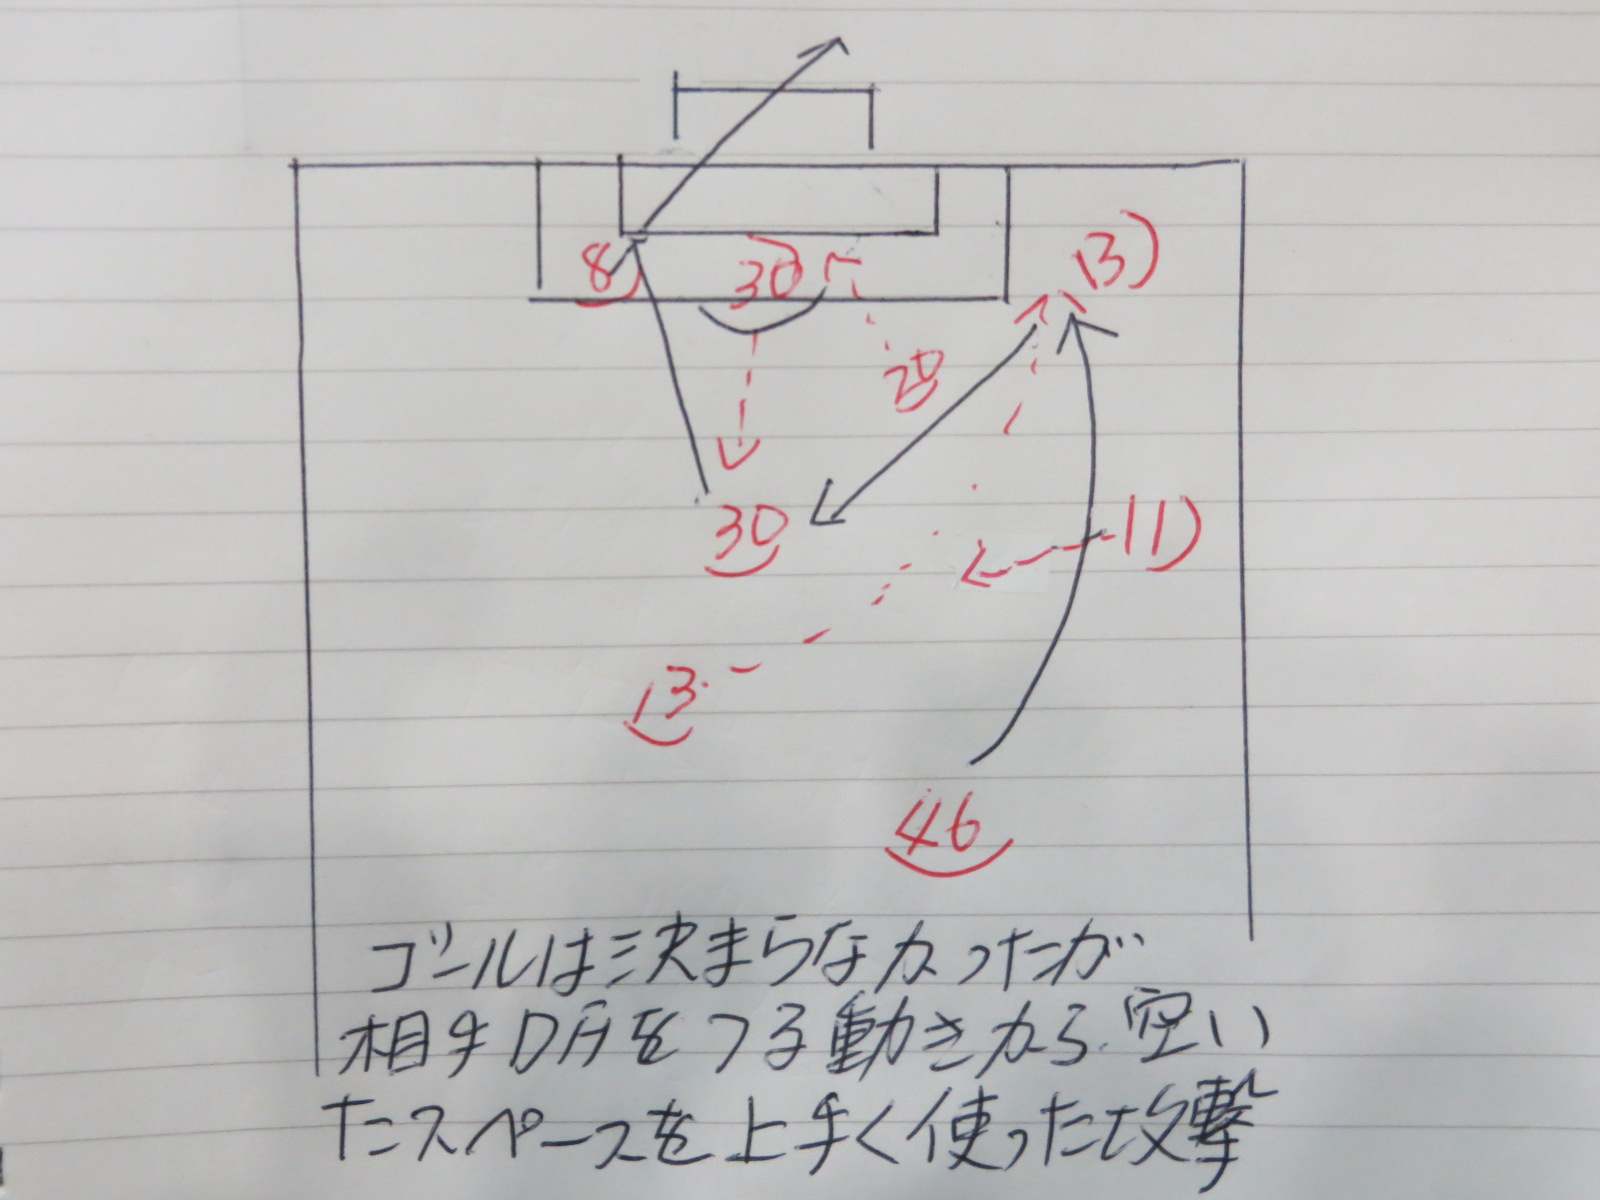 8
30
13
20
30
11
13
46
ゴールは決まらなかったが
相手DFをつる動きから空い
たスペースを上手く使った攻撃